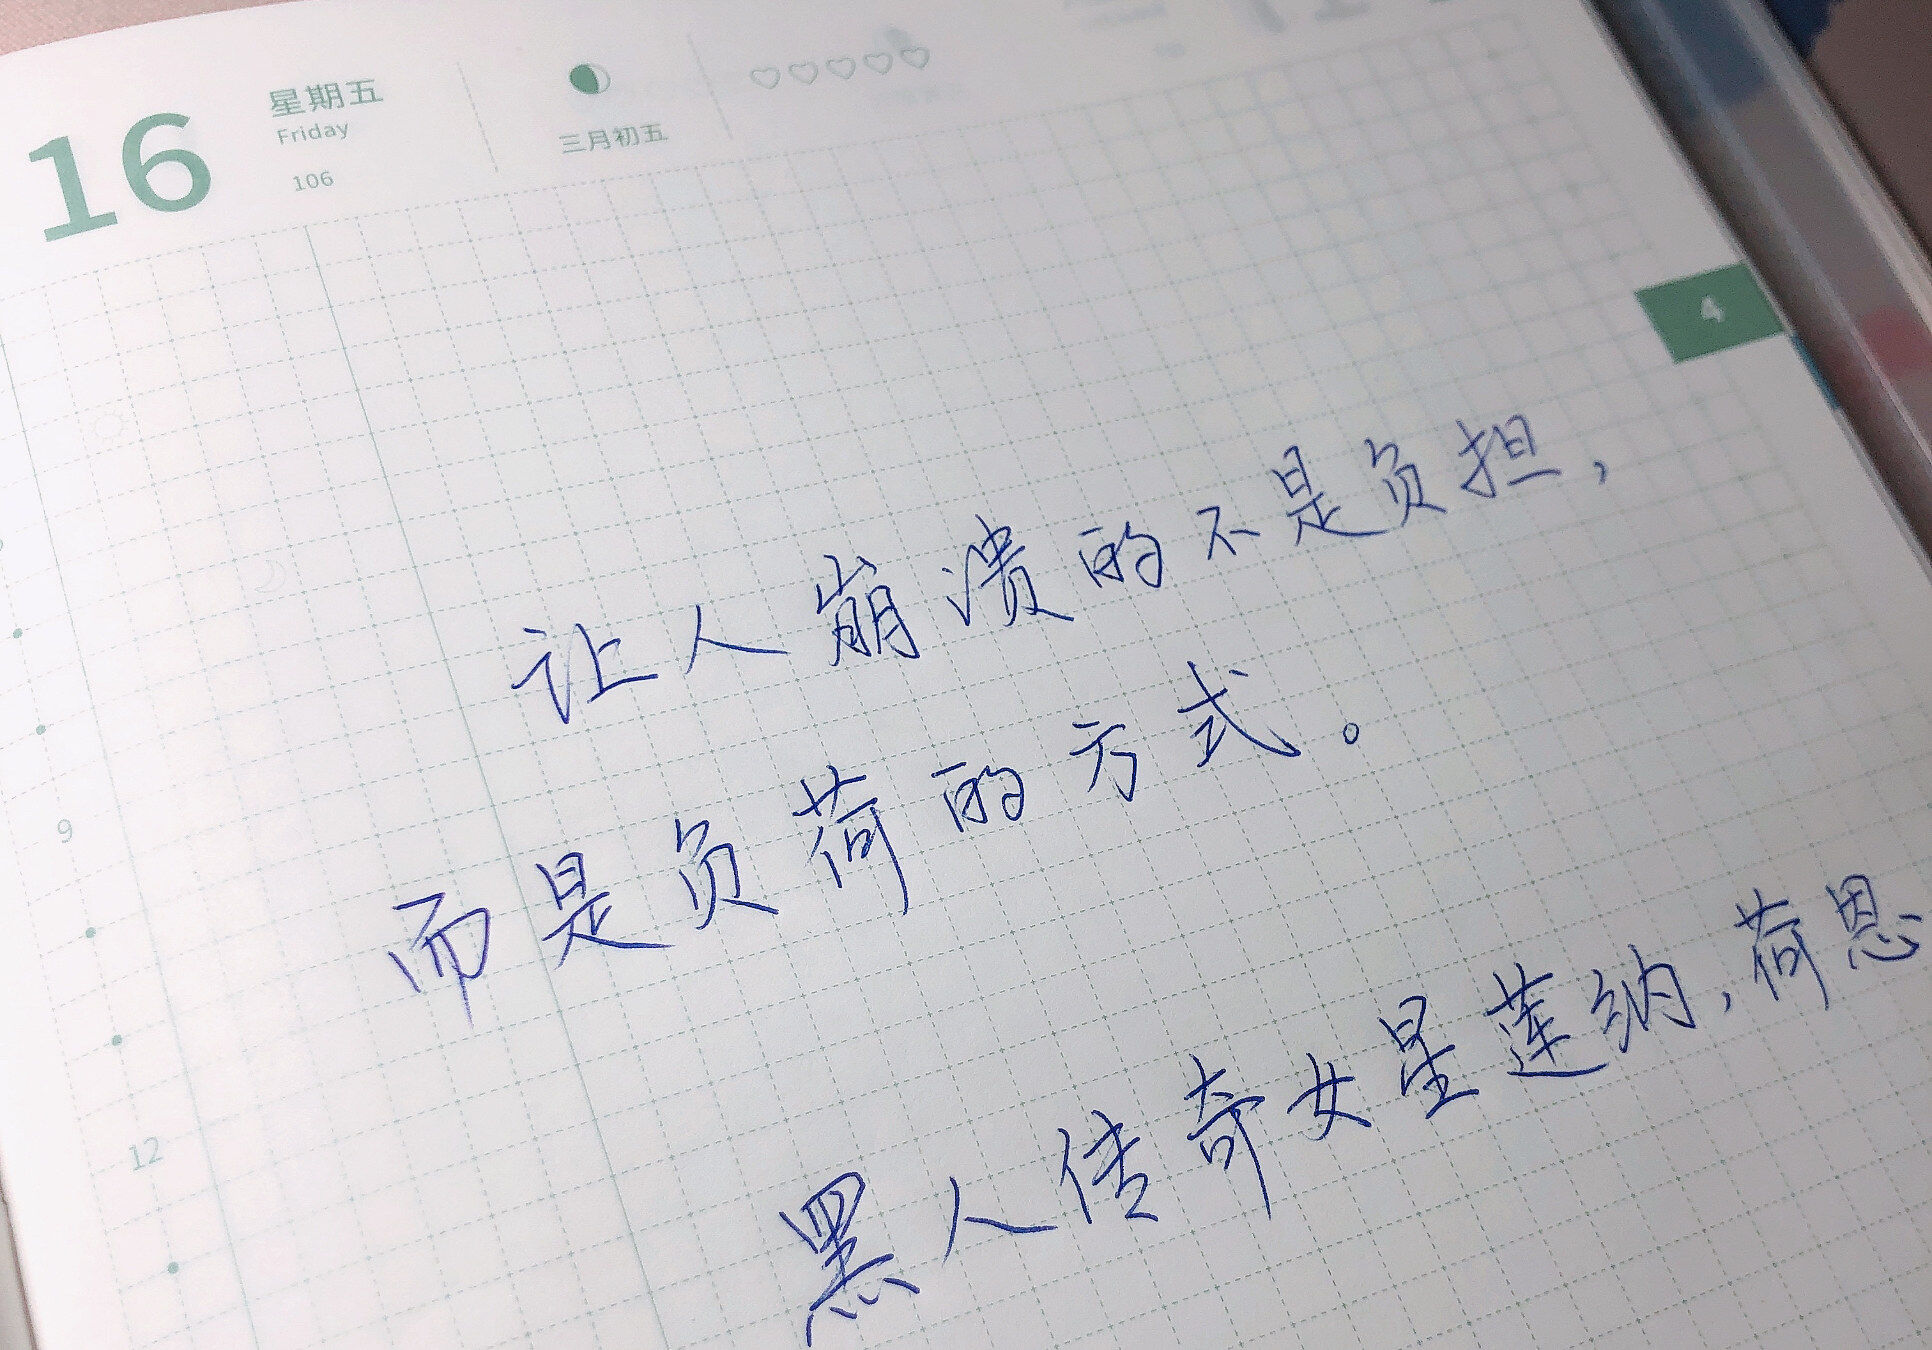 16 星期五
Friday
106
三月初五
4
让人崩溃的不是负担，
而是负荷的方式。
黑人传奇女星莲纳，荷恩
9
12